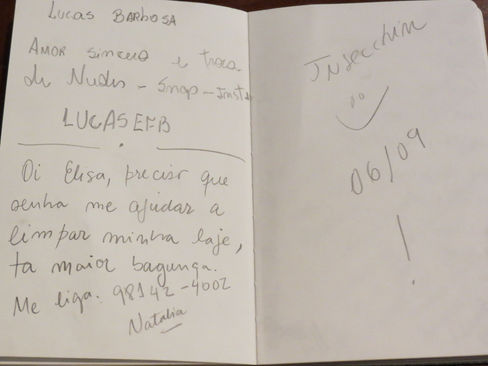 Lucas Barbosa
Amor sincero e troca
de Nudes - Snap - Insta
LUCASEFB
Oi Elisa, preciso que
venha me ajudar a
limpar minha laje,
ta maior bagunça.
Me liga: 98142-4002
Natalia
06/09
!